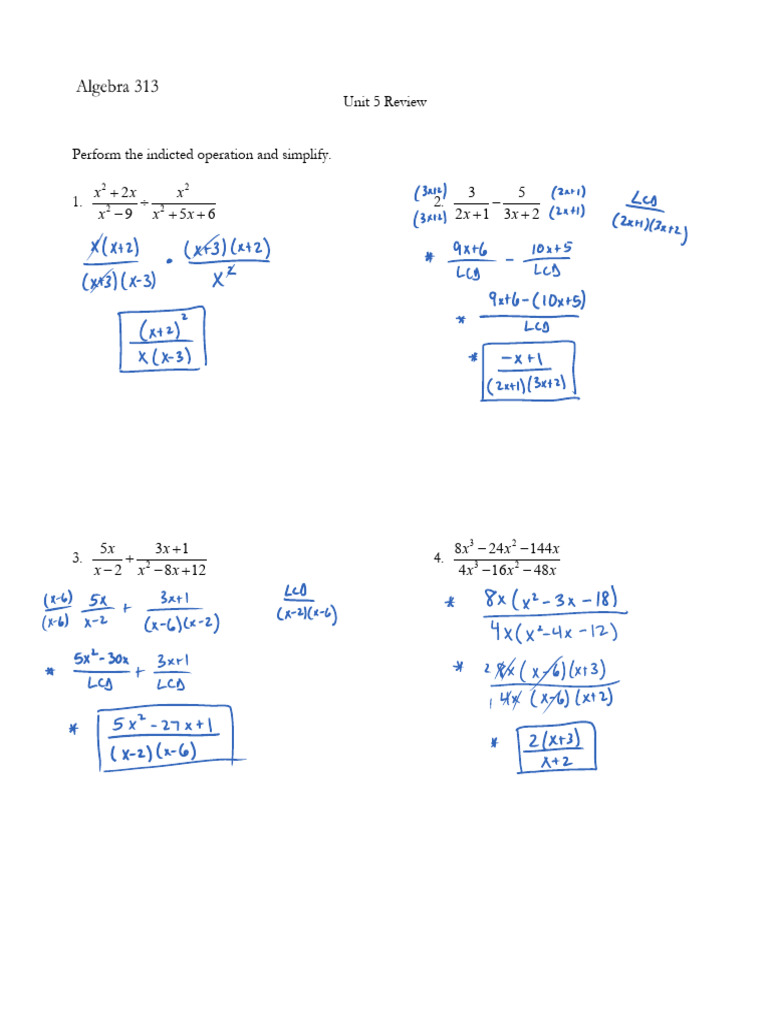 Algebra 313
Unit 5 Review
Perform the indicted operation and simplify.
1. (x²+2x)/(x²−9) ÷ x²/(x²+5x+6)
x(x+2)/((x+3)(x-3)) • (x+3)(x+2)/x²
(x+2)²/(x(x-3))
2. (3x+2)/(3x+2) 3/(2x+1) − 5/(3x+2) (2x+1)/(2x+1)
LCD (2x+1)(3x+2)
* (9x+6)/LCD - (10x+5)/LCD
* (9x+6-(10x+5))/LCD
* (-x+1)/((2x+1)(3x+2))
3. 5x/(x−2) + (3x+1)/(x²−8x+12)
(x-6)/(x-6) 5x/(x-2) + (3x+1)/((x-6)(x-2))
LCD (x-2)(x-6)
* (5x²-30x)/LCD + (3x+1)/LCD
* (5x²-27x+1)/((x-2)(x-6))
4. (8x³−24x²−144x)/(4x³−16x²−48x)
* 8x(x²-3x-18)/(4x(x²-4x-12))
* 2 8x(x-6)(x+3)/(1 4x(x-6)(x+2))
* 2(x+3)/(x+2)